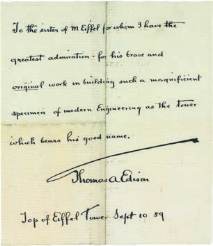 To the sister of M Eiffel for whom I have the
greatest admiration - for his brave and
original work in building such a magnificent
specimen of modern Engineering as the tower
which bears his good name.
Thomas A Edison
Top of Eiffel Tower Sept 10 89